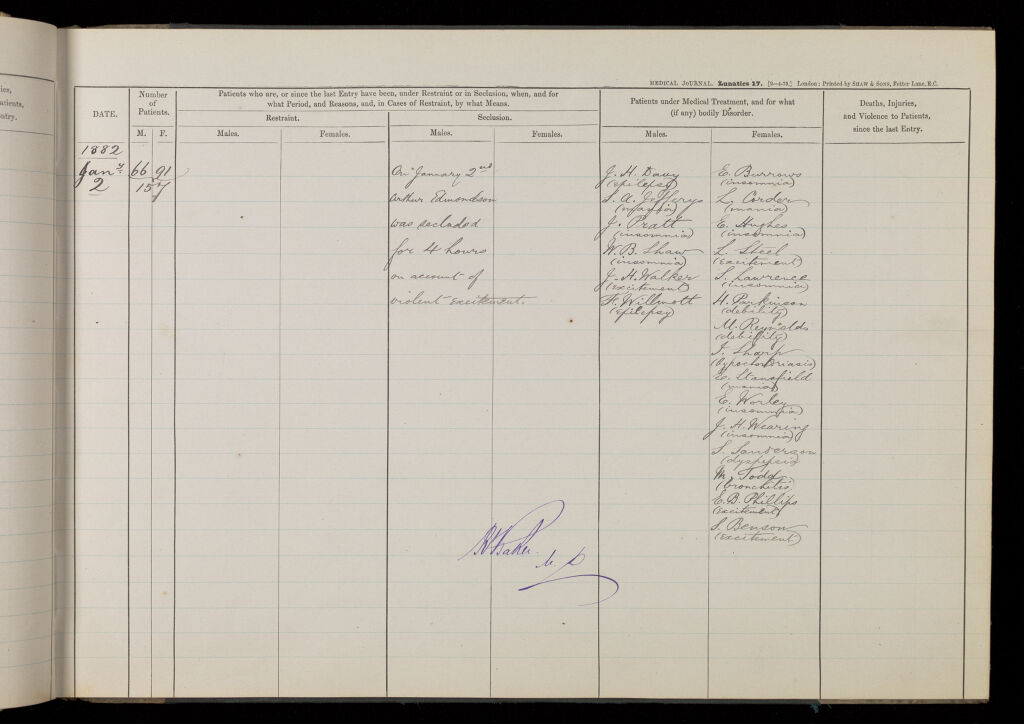 ies,
atients,
ntry.
MEDICAL JOURNAL. Lunatics 17. [9—4-79.] London: Printed by SHAW & SONS, Fetter Lane, E.C.
DATE.
Number
of
Patients.
M. F.
Patients who are, or since the last Entry have been, under Restraint or in Seclusion, when, and for
what Period, and Reasons, and, in Cases of Restraint, by what Means.
Restraint.
Seclusion.
Males. Females. Males. Females.
Patients under Medical Treatment, and for what
(if any) bodily Disorder.
Males. Females.
Deaths, Injuries,
and Violence to Patients,
since the last Entry.
1882
Jany
2
66 91
157
On January 2nd
Arthur Edmondson
was secluded
for 4 hours
on account of
violent excitement.
J. H. Davy
(epilepsy)
S. A. Jefferys
(mania)
J. Pratt
(insomnia)
W. B. Shaw
(insomnia)
J. H. Walker
(excitement)
F. Willmott
(epilepsy)
E. Burrows
(insomnia)
L. Corder
(mania)
E. Hughes
(insomnia)
L. Steel
(excitement)
S. Lawrence
(insomnia)
H. Parkinson
(debility)
M. Reynolds
(debility)
I. Sharp
(hypochondriasis)
E. Stansfield
(mania)
E. Worley
(insomnia)
J. H. Wearing
(insomnia)
S. Sanderson
(dyspepsia
M. Todd
(bronchitis
E. B. Phillips
(excitement)
S. Benson
(excitement)
Baker